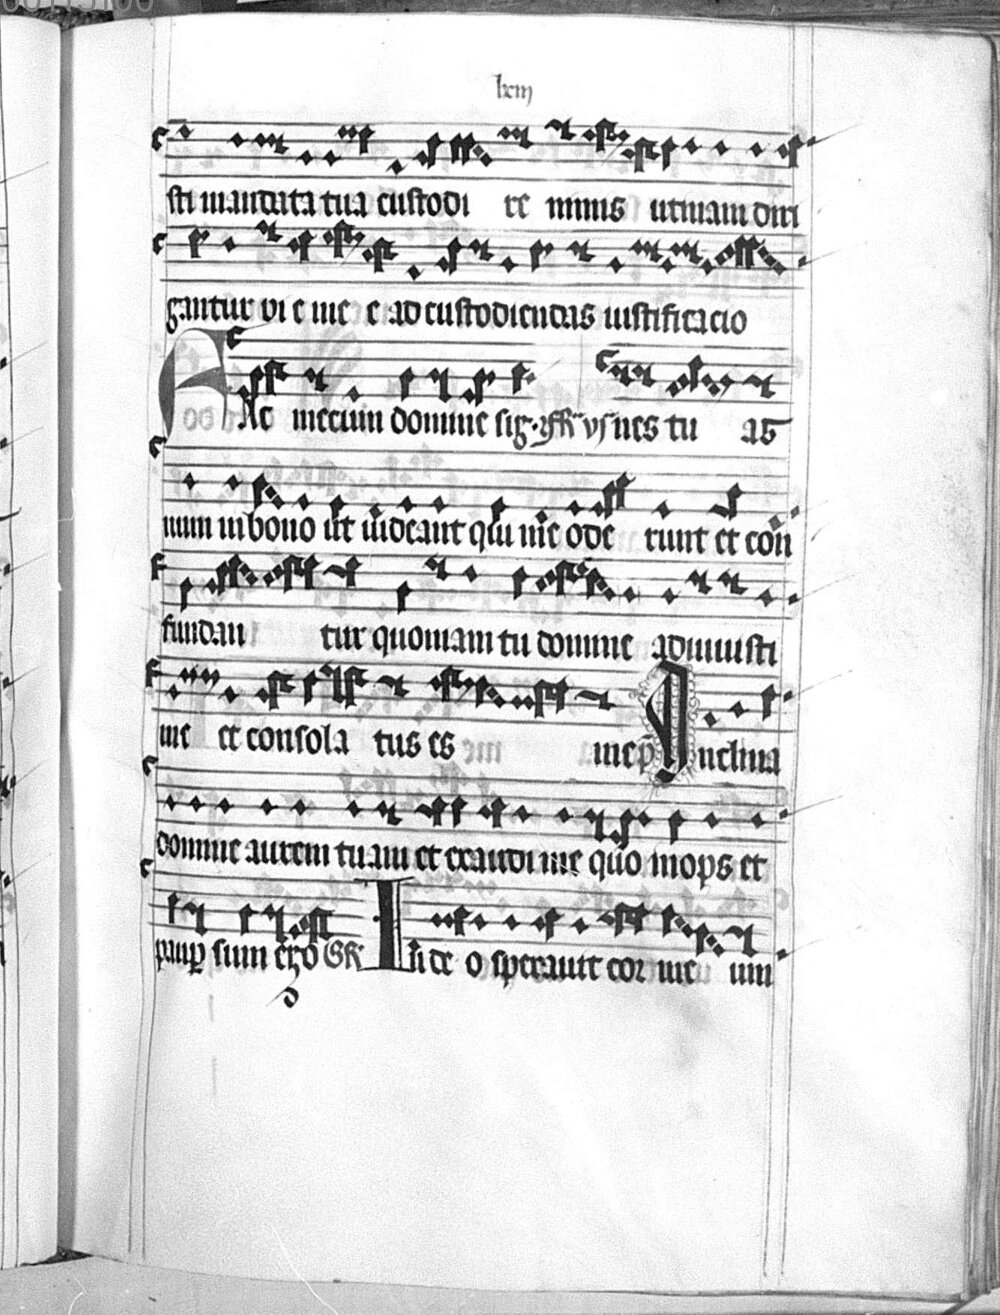 lxiij
sti mandata tua custodi re nimis utinam diri
gantur vi e me e ad custodiendas iustificacio
FAc mecum domine sig. nes tu as
num in bono ut uideant qui me ode runt et con
fundan tur quoniam tu domine adiuuisti
me et consola tus es me p̄ Inclina
domine aurem tuam et exaudi me quo inops et
paup sum ego GR In de o sperauit cor me um